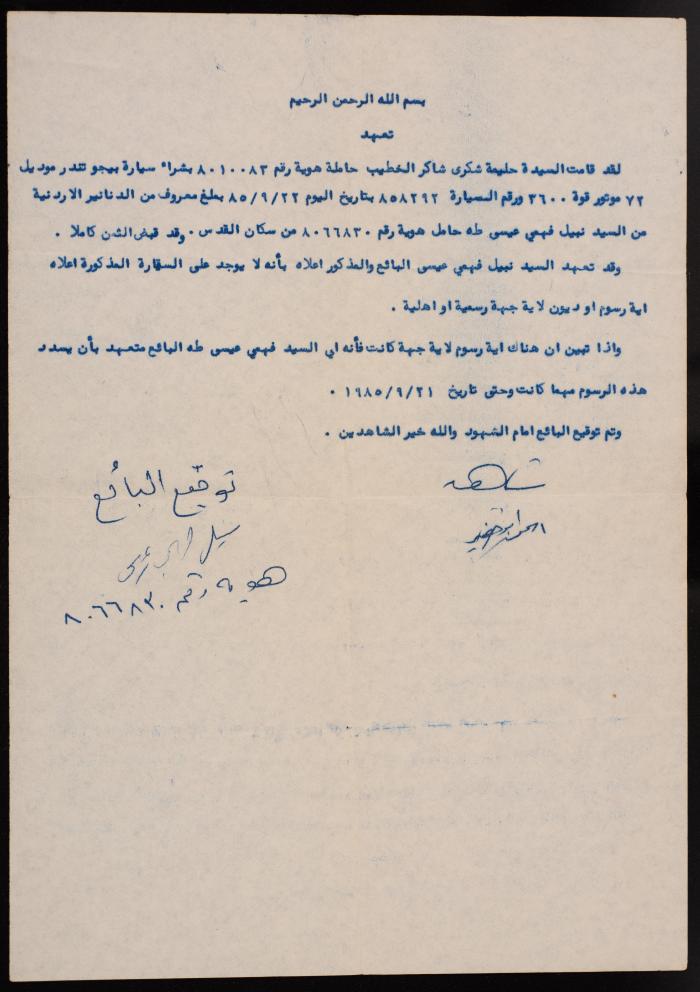 بسم الله الرحمن الرحيم
تعهد
لقد قامت السيدة حليمة شكرى شاكر الخطيب حاملة هوية رقم ٨٠١٠٠٨٣ بشراء سيارة بيجو تندر موديل
٧٢ موتور قوة ٣٦٠٠ ورقم السيارة ٨٥٨٢٩٢ بتاريخ اليوم ٨٥/٩/٢٢ بمبلغ معروف من الدنانير الاردنية
من السيد نبيل فهمي عيسى طه حامل هوية رقم ٨٠٦٦٨٣٠ من سكان القدس . وقد قبض الثمن كاملا .
وقد تعهد السيد نبيل فهمي عيسى البائع والمذكور اعلاه بأنه لا يوجد على السقارة المذكورة اعلاه
اية رسوم او ديون لاية جهة رسمية او اهلية .
واذا تبين ان هناك اية رسوم لاية جهة كانت فأنه ابي السيد فهمي عيسى طه البائع متعهد بأن يسدد
هذه الرسوم مهما كانت وحتى تاريخ ١٩٨٥/٩/٢١ .
وتم توقيع البائع امام الشهود والله خير الشاهدين .
شاهد
توقيع البائع
نبيل فهمي عيسى
هوية رقم ٨٠٦٦٨٣٠